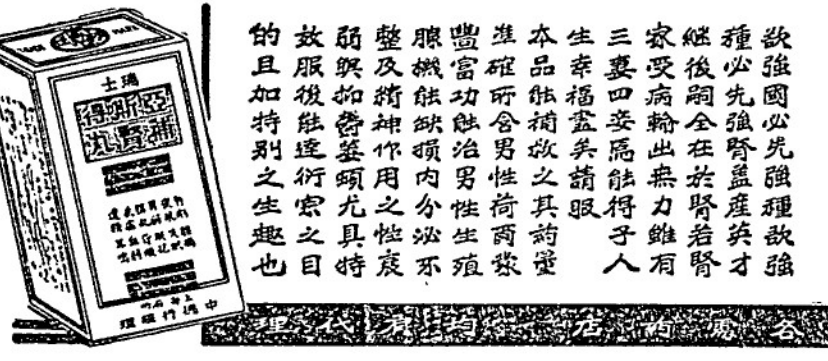 欲強國必先強種欲強
種必先強腎蓋產英才
繼後嗣全在於腎若腎
家受病輸出無力雖有
三妻四妾焉能得子人
生幸福盡矣請服
本品能補救之其葯量
準確所含男性荷爾蒙
豐富功能治男性生殖
腺機能缺損內分泌不
整及精神作用之性衰
弱與抑鬱萎頓尤具特
效服後能達衍宗之目
的且加特別之生趣也
瑞士
亞斯得
補腎丸
上海
各葯店均有代理